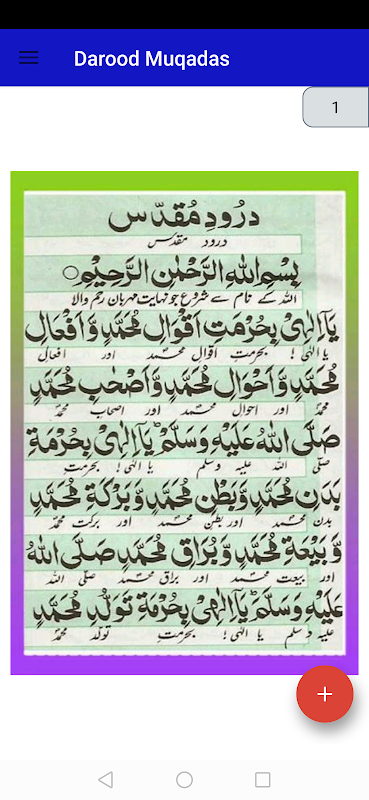 Darood Muqadas
1
درُودِ مُقدّس
درود مقدس
بِسْمِ اللهِ الرَّحْمٰنِ الرَّحِيْمِ
اللہ کے نام سے شروع جو نہایت مہربان رحم والا
يَآ اِلٰهِىْ بِحُرْمَتِ اَقْوَالِ مُحَمَّدٍ وَّ اَفْعَالِ
یا الٰہی! بحرمتِ اقوالِ محمد اور افعال
مُحَمَّدٍ وَّ اَحْوَالِ مُحَمَّدٍ وَّ اَصْحٰبِ مُحَمَّدٍ
محمد اور احوال محمد اور اصحاب محمد
صَلَّى اللهُ عَلَيْهِ وَسَلَّمَ ط يَآ اِلٰهِىْ بِحُرْمَةِ
صلی اللہ علیہ وسلم یا الٰہی! بحرمتِ
بَدَنِ مُحَمَّدٍ وَّ بَطْنِ مُحَمَّدٍ وَّ بَرْكَةِ مُحَمَّدٍ
بدن محمد اور بطن محمد اور برکت محمد
وَّ بِيْعَةِ مُحَمَّدٍ وَّ بُرَاقِ مُحَمَّدٍ صَلَّى اللهُ
اور بیعت محمد اور براق محمد صلی اللہ
عَلَيْهِ وَسَلَّمَ ط يَآ اِلٰهِىْ بِحُرْمَةِ تَوَلُّدِ مُحَمَّدٍ
علیہ وسلم یا الٰہی! بحرمتِ تولد محمد